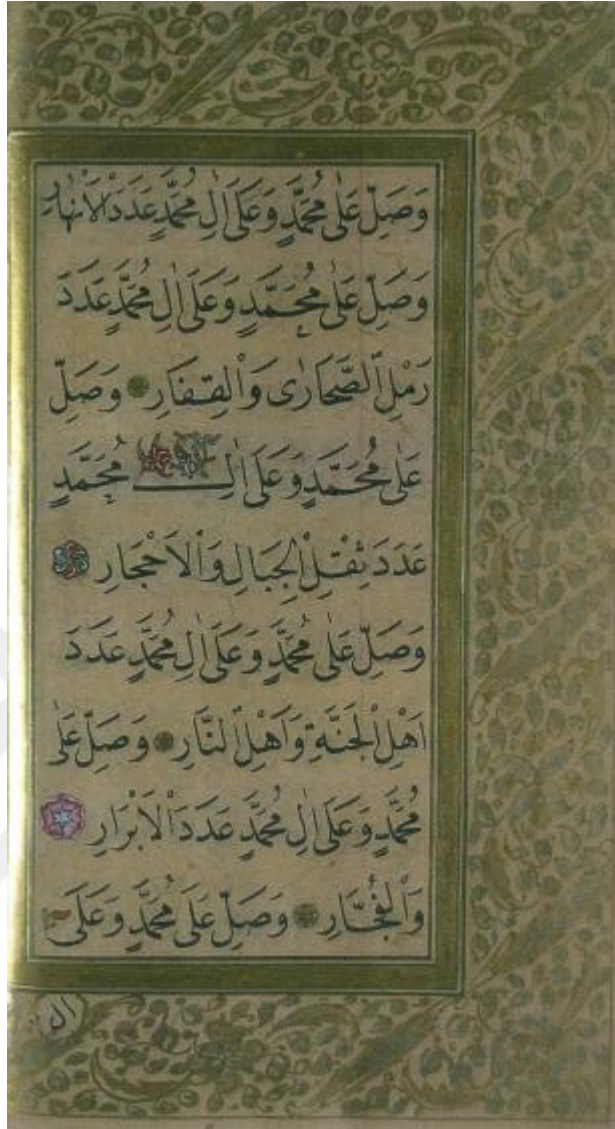 وَصَلِّ عَلٰى مُحَمَّدٍ وَعَلَى اٰلِ مُحَمَّدٍ عَدَدَ الْاَنْهَارِ
وَصَلِّ عَلٰى مُحَمَّدٍ وَعَلَى اٰلِ مُحَمَّدٍ عَدَدَ
رَمْلِ الصَّحَارٰى وَالْقِفَارِ وَصَلِّ
عَلٰى مُحَمَّدٍ وَعَلَى اٰلِ مُحَمَّدٍ
عَدَدَ ثِقْلِ الْجِبَالِ وَالْاَحْجَارِ
وَصَلِّ عَلٰى مُحَمَّدٍ وَعَلَى اٰلِ مُحَمَّدٍ عَدَدَ
اَهْلِ الْجَنَّةِ وَاَهْلِ النَّارِ وَصَلِّ عَلٰى
مُحَمَّدٍ وَعَلَى اٰلِ مُحَمَّدٍ عَدَدَ الْاَبْرَارِ
وَالْفُجَّارِ وَصَلِّ عَلَى مُحَمَّدٍ وَعَلَى
اٰل